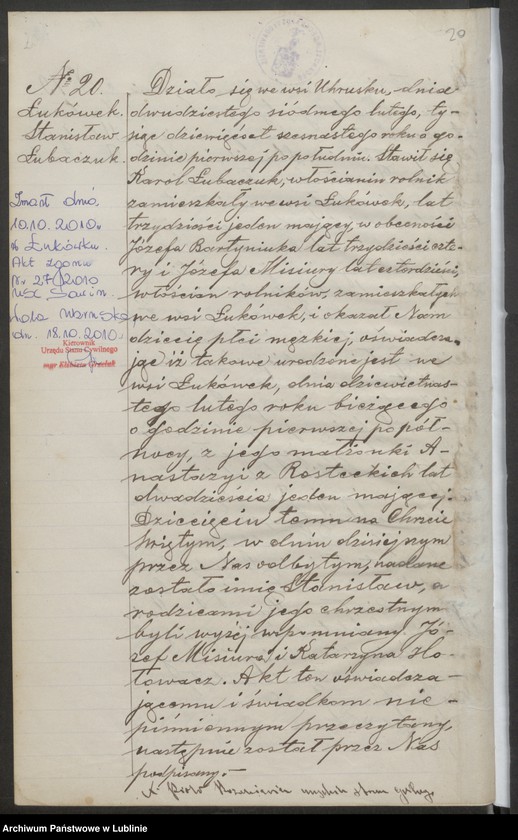 20
№ 20.
Łukówek.
Stanisław
Łubaczuk.
Zmarł dnia
10.10.2010r.
w Łukówku.
Akt zgonu
Nr 27/2010
USC Sawin.
dn. 18.10.2010.
Kierownik
Urzędu Stanu Cywilnego
mgr Elżbieta
Działo się we wsi Uhrusku, dnia
dwudziestego siódmego lutego, ty-
siąc dziewięćset szesnastego roku o go-
dzinie pierwszej po południu. Stawił się
Karol Łubaczuk, włościanin rolnik
zamieszkały we wsi Łukówek, lat
trzydzieści jeden mający, w obecności
Józefa Bortyniuka lat trzydzieści czte-
ry i Józefa Misiury lat czterdzieści,
włościan rolników, zamieszkałych
we wsi Łukówek, i okazał Nam
dziecię płci męzkiej, oświadcza-
jąc iż takowe urodzone jest we
wsi Łukówek, dnia dziewiętnas-
tego lutego roku bieżącego
o godzinie pierwszej po pół-
nocy, z jego małżonki A-
nastazyi z Rosteckich lat
dwadzieścia jeden mającej.
Dziecięciu temu na Chrzcie
świętym, w dniu dzisiejszym
przez Nas odbytym, nadane
zostało imię Stanisław, a
rodzicami jego chrzestnym
byli wyżej wspomniany Jó-
zef Misiura i Katarzyna Ho-
łowacz. Akt ten oświadcza-
jącemu i świadkom nie-
piśmiennym przeczytany,
następnie został przez Nas
podpisany.-
X. Piotr
Archiwum Państwowe w Lublinie
szukajwarchiwach.pl